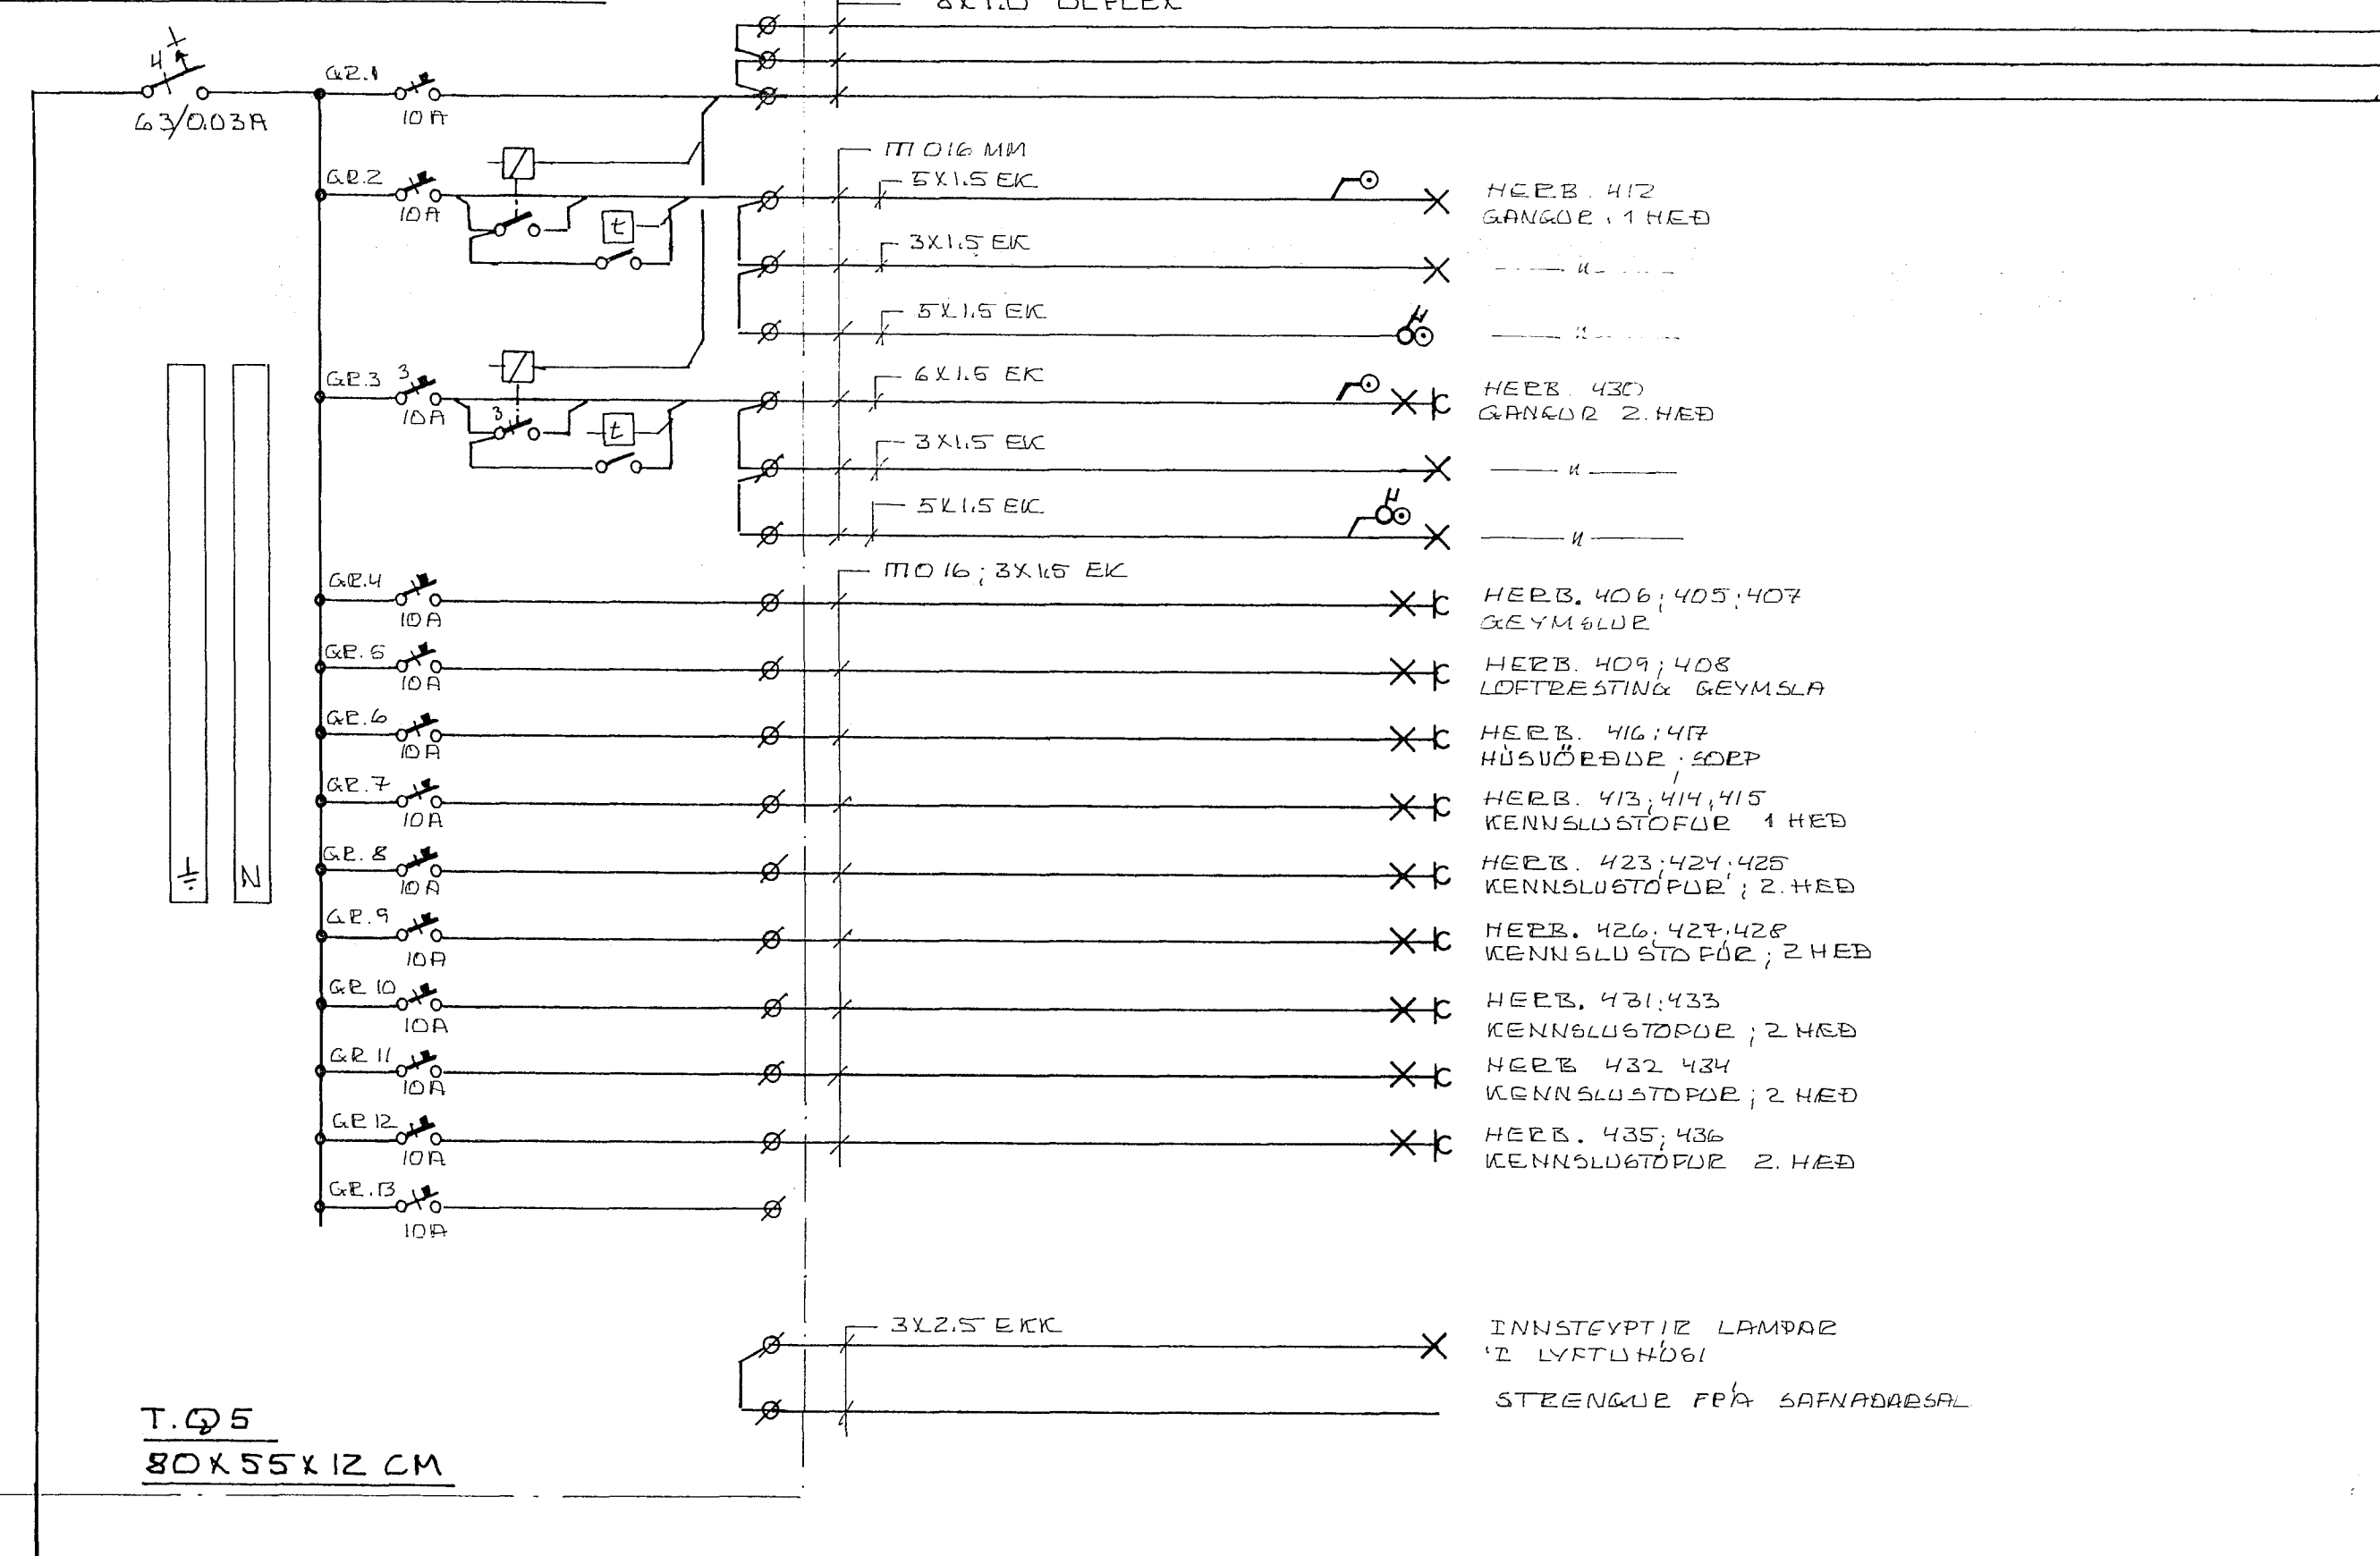 8X1.0 ÖLFLEX
4
63/0.03A
GR.1
10A
GR.2
10A
t
MO16 MM
5X1.5 EK
HERB. 412
GANGUR, 1 HÆÐ
3X1.5 EK
— 〃 —
5X1.5 EK
— 〃 —
GR.3
3
10A
3
t
6X1.5 EK
HERB. 430
GANGUR 2. HÆÐ
3X1.5 EK
— 〃 —
5X1.5 EK
— 〃 —
MO16; 3X1.5 EK
GR.4
10A
HERB. 406; 405; 407
GEYMSLUR
GR.5
10A
HERB. 409; 408
LOFTRESTING GEYMSLA
GR.6
10A
HERB. 416; 417
HÚSVÖRÐUR; SORP
GR.7
10A
HERB. 413; 414, 415
KENNSLUSTOFUR 1 HÆÐ
GR.8
10A
HERB. 423; 424; 425
KENNSLUSTOFUR; 2. HÆÐ
GR.9
10A
HERB. 426; 427; 428
KENNSLUSTOFUR; 2 HÆÐ
GR 10
10A
HERB. 431; 433
KENNSLUSTOFUR; 2 HÆÐ
GR 11
10A
HERB 432 434
KENNSLUSTOFUR; 2 HÆÐ
GR 12
10A
HERB. 435; 436
KENNSLUSTOFUR 2. HÆÐ
GR.13
10A
N
3X2.5 EKK
INNSTEYPTIR LAMPAR
Í LYFTUHÚSI
STRENGUR FRÁ SAFNAÐARSAL
T.Q5
80X55X12 CM